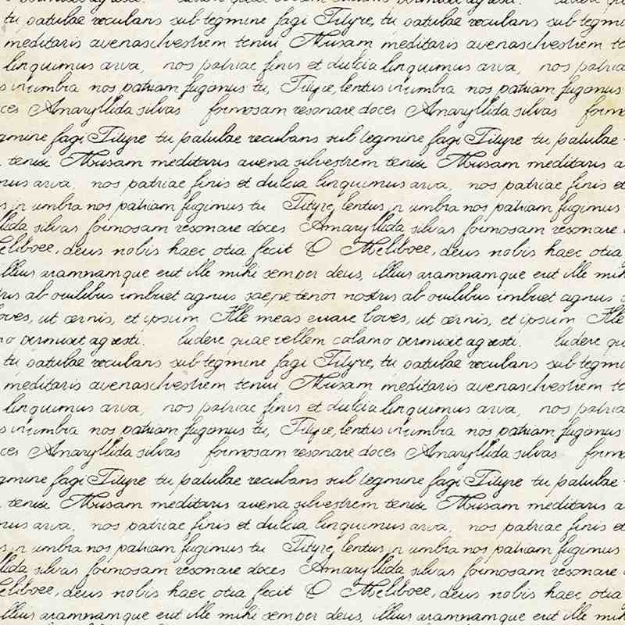 tu patulae recubans sub tegmine fagi Tityre, tu patulae recubans sub tegmi
meditaris avenasilvestrem tenui Musam meditaris avenasilvestrem te
linquimus arva, nos patriae finis et dulcia linquimus arva, nos patria
s in umbra nos patriam fugimus tu, Tityre, lentus in umbra nos patriam fugimus
ces Amaryllida silvas formosam resonare doces Amaryllida silvas formo
gmine fagi Tityre tu patulae recubans sub tegmine fagi Tityre tu patulae
tenui Musam meditaris avena silvestrem tenui Musam meditaris a
mus arva, nos patriae finis et dulcia linquimus arva, nos patriae finis et
n umbra nos patriam fugimus tu Tityre, lentus n umbra nos patriam fugimus
llida silvas formosam resonare doces Amaryllida silvas formosam resonare
eliboee, deus nobis haec otia fecit O Meliboee, deus nobis haec otia
illius aramnamque erit ille mihi semper deus, illius aramnamque erit ille mih
ris ab ovilibus imbuet agnus saepe tener nostris ab ovilibus imbuet agnus
oves, ut cernis, et ipsum Ille meas errare boves, ut cernis, et ipsum Ille
o permisit agresti. ludere quae vellem calamo permisit agresti. ludere qu
tu patulae recubans sub tegmine fagi Tityre, tu patulae recubans sub tegmi
meditaris avenasilvestrem tenui Musam meditaris avenasilvestrem te
linquimus arva, nos patriae finis et dulcia linquimus arva, nos patria
s in umbra nos patriam fugimus tu, Tityre, lentus in umbra nos patriam fugimus
ces Amaryllida silvas formosam resonare doces Amaryllida silvas formo
gmine fagi Tityre tu patulae recubans sub tegmine fagi Tityre tu patulae
tenui Musam meditaris avena silvestrem tenui Musam meditaris a
mus arva, nos patriae finis et dulcia linquimus arva, nos patriae finis et
n umbra nos patriam fugimus tu Tityre, lentus n umbra nos patriam fugimus
llida silvas formosam resonare doces Amaryllida silvas formosam resonare
eliboee, deus nobis haec otia fecit O Meliboee, deus nobis haec otia
illius aramnamque erit ille mihi semper deus, illius aramnamque erit ille mih